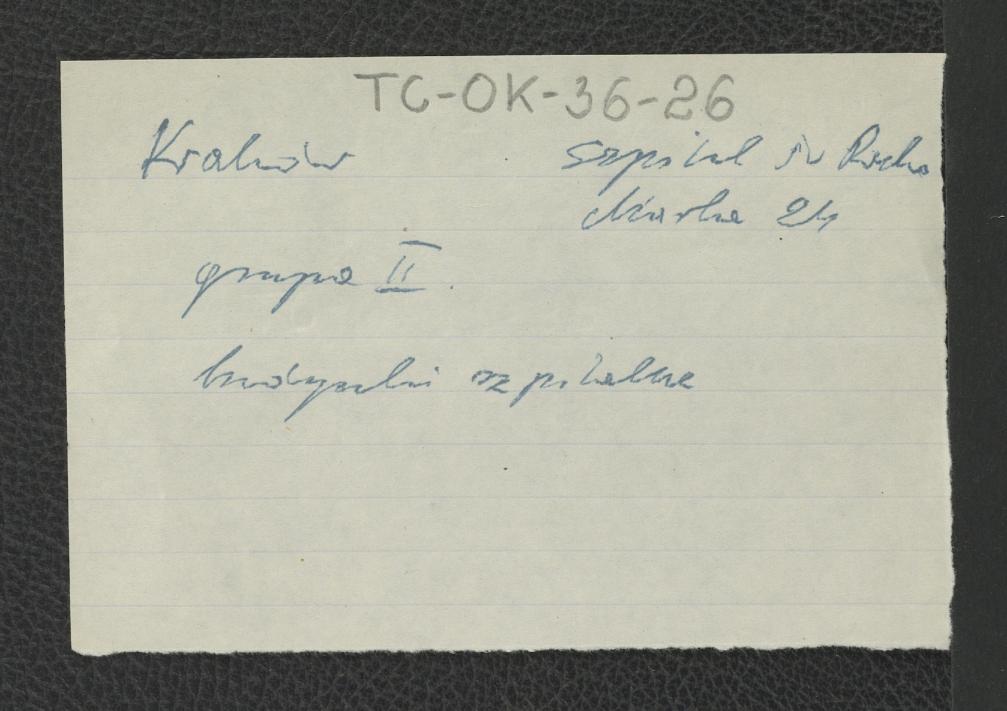 TC-OK-36-26
Kraków szpital św Rocha
Marka 24
grupa II.
budynki szpitalne